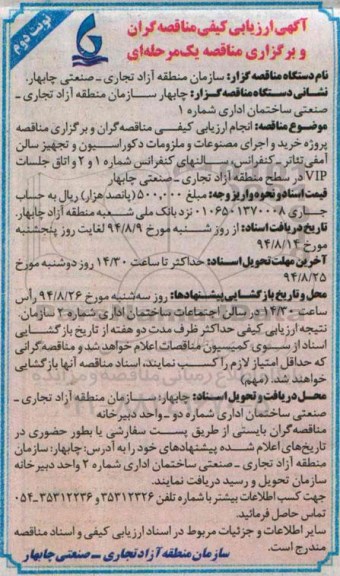 نوبت دوم
آگهی ارزیابی کیفی مناقصه گران
و برگزاری مناقصه یک مرحله‌ای
نام دستگاه مناقصه گزار: سازمان منطقه آزاد تجاری ـ صنعتی چابهار.
نشانی دستگاه مناقصه گزار: چابهار سازمان منطقه آزاد تجاری ـ
صنعتی ساختمان اداری شماره ۱
موضوع مناقصه: انجام ارزیابی کیفی مناقصه گران و برگزاری مناقصه
پروژه خرید و اجرای مصنوعات و ملزومات دکوراسیون و تجهیز سالن
آمفی تئاتر ـ کنفرانس، سالنهای کنفرانس شماره ۱ و ۲ و اتاق جلسات
VIP در سطح منطقه آزاد تجاری ـ صنعتی چابهار
قیمت اسناد و نحوه واریز وجه: مبلغ ۵۰۰,۰۰۰ (پانصد هزار) ریال به حساب
جاری ۰۱۰۶۵۰۱۳۷۰۰۰۸ نزد بانک ملی شعبه منطقه آزاد چابهار.
تاریخ دریافت اسناد: از روز شنبه مورخ ۹۴/۸/۹ لغایت روز پنجشنبه
مورخ ۹۴/۸/۱۴
آخرین مهلت تحویل اسناد: حداکثر تا ساعت ۱۴/۳۰ روز دوشنبه مورخ
۹۴/۸/۲۵
محل و تاریخ بازگشایی پیشنهادها: روز سه‌شنبه مورخ ۹۴/۸/۲۶ رأس
ساعت ۱۴/۳۰ در سالن اجتماعات ساختمان اداری شماره ۲ سازمان.
نتیجه ارزیابی کیفی حداکثر ظرف مدت دو هفته از تاریخ بازگشایی
اسناد از سوی کمیسیون مناقصات اعلام خواهد شد و مناقصه گرانی
که حداقل امتیاز لازم را کسب نمایند، اسناد مناقصه آنها بازگشایی
خواهند شد. (مهم)
محل دریافت و تحویل اسناد: چابهار، سازمان منطقه آزاد تجاری ـ
صنعتی ساختمان اداری شماره دو ـ واحد دبیرخانه
مناقصه گران بایستی از طریق پست سفارشی یا بطور حضوری در
تاریخ‌های اعلام شده پیشنهادهای خود را به آدرس: چابهار: سازمان
منطقه آزاد تجاری ـ صنعتی ساختمان اداری شماره ۲ واحد دبیر خانه
سازمان تحویل و رسید دریافت نمایند.
جهت کسب اطلاعات بیشتر با شماره تلفن ۳۵۳۱۲۳۲۶ و ۳۵۳۱۲۲۳۶-۰۵۴
تماس حاصل فرمائید.
سایر اطلاعات و جزئیات مربوط در اسناد ارزیابی کیفی و اسناد مناقصه
مندرج است.
سازمان منطقه آزاد تجاری ـ صنعتی چابهار